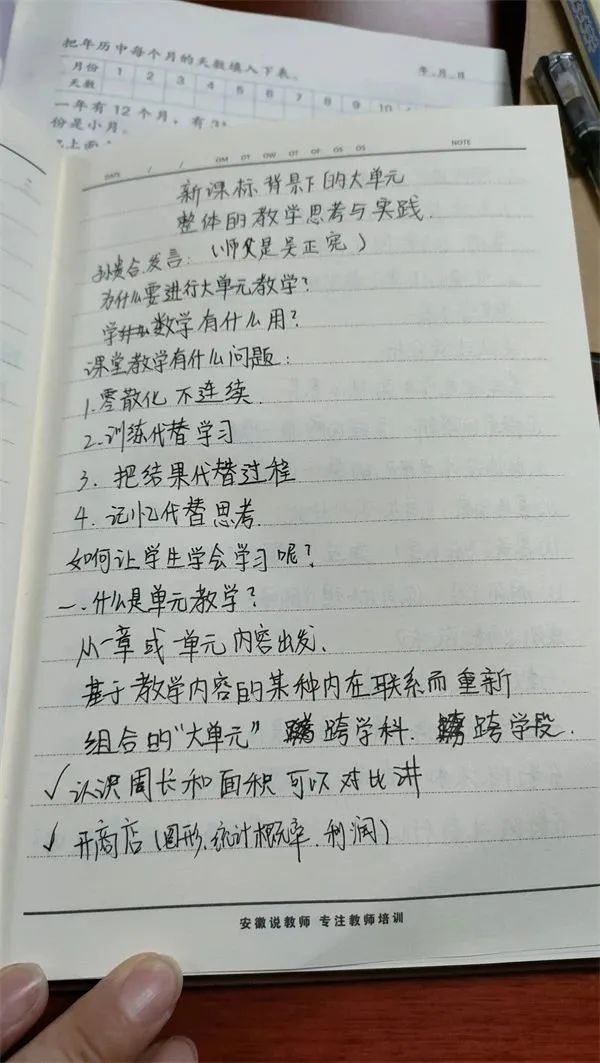 把年历中每个月的天数填入下表。
年 月 日
月份 1 2 3 4 5 6 7 8 9 10
天数
一年有 12 个月，有
份是小月。
DATE / / OM OT OW OT OF OS OS NOTE
新课标背景下的大单元
整体的教学思考与实践.
孙贵合发言：（师父是吴正宪）
为什么要进行大单元教学？
学数学有什么用？
课堂教学有什么问题：
1.零散化 不连续.
2.训练代替学习
3. 把结果代替过程
4. 记忆代替思考.
如何让学生学会学习呢？
一.什么是单元教学？
从一章或一单元内容出发.
基于教学内容的某种内在联系而重新
组合的“大单元” 跨学科. 跨学段.
✓认识周长和面积可以对比讲
✓ 开商店（图形.统计概率.利润）
安徽说教师 专注教师培训